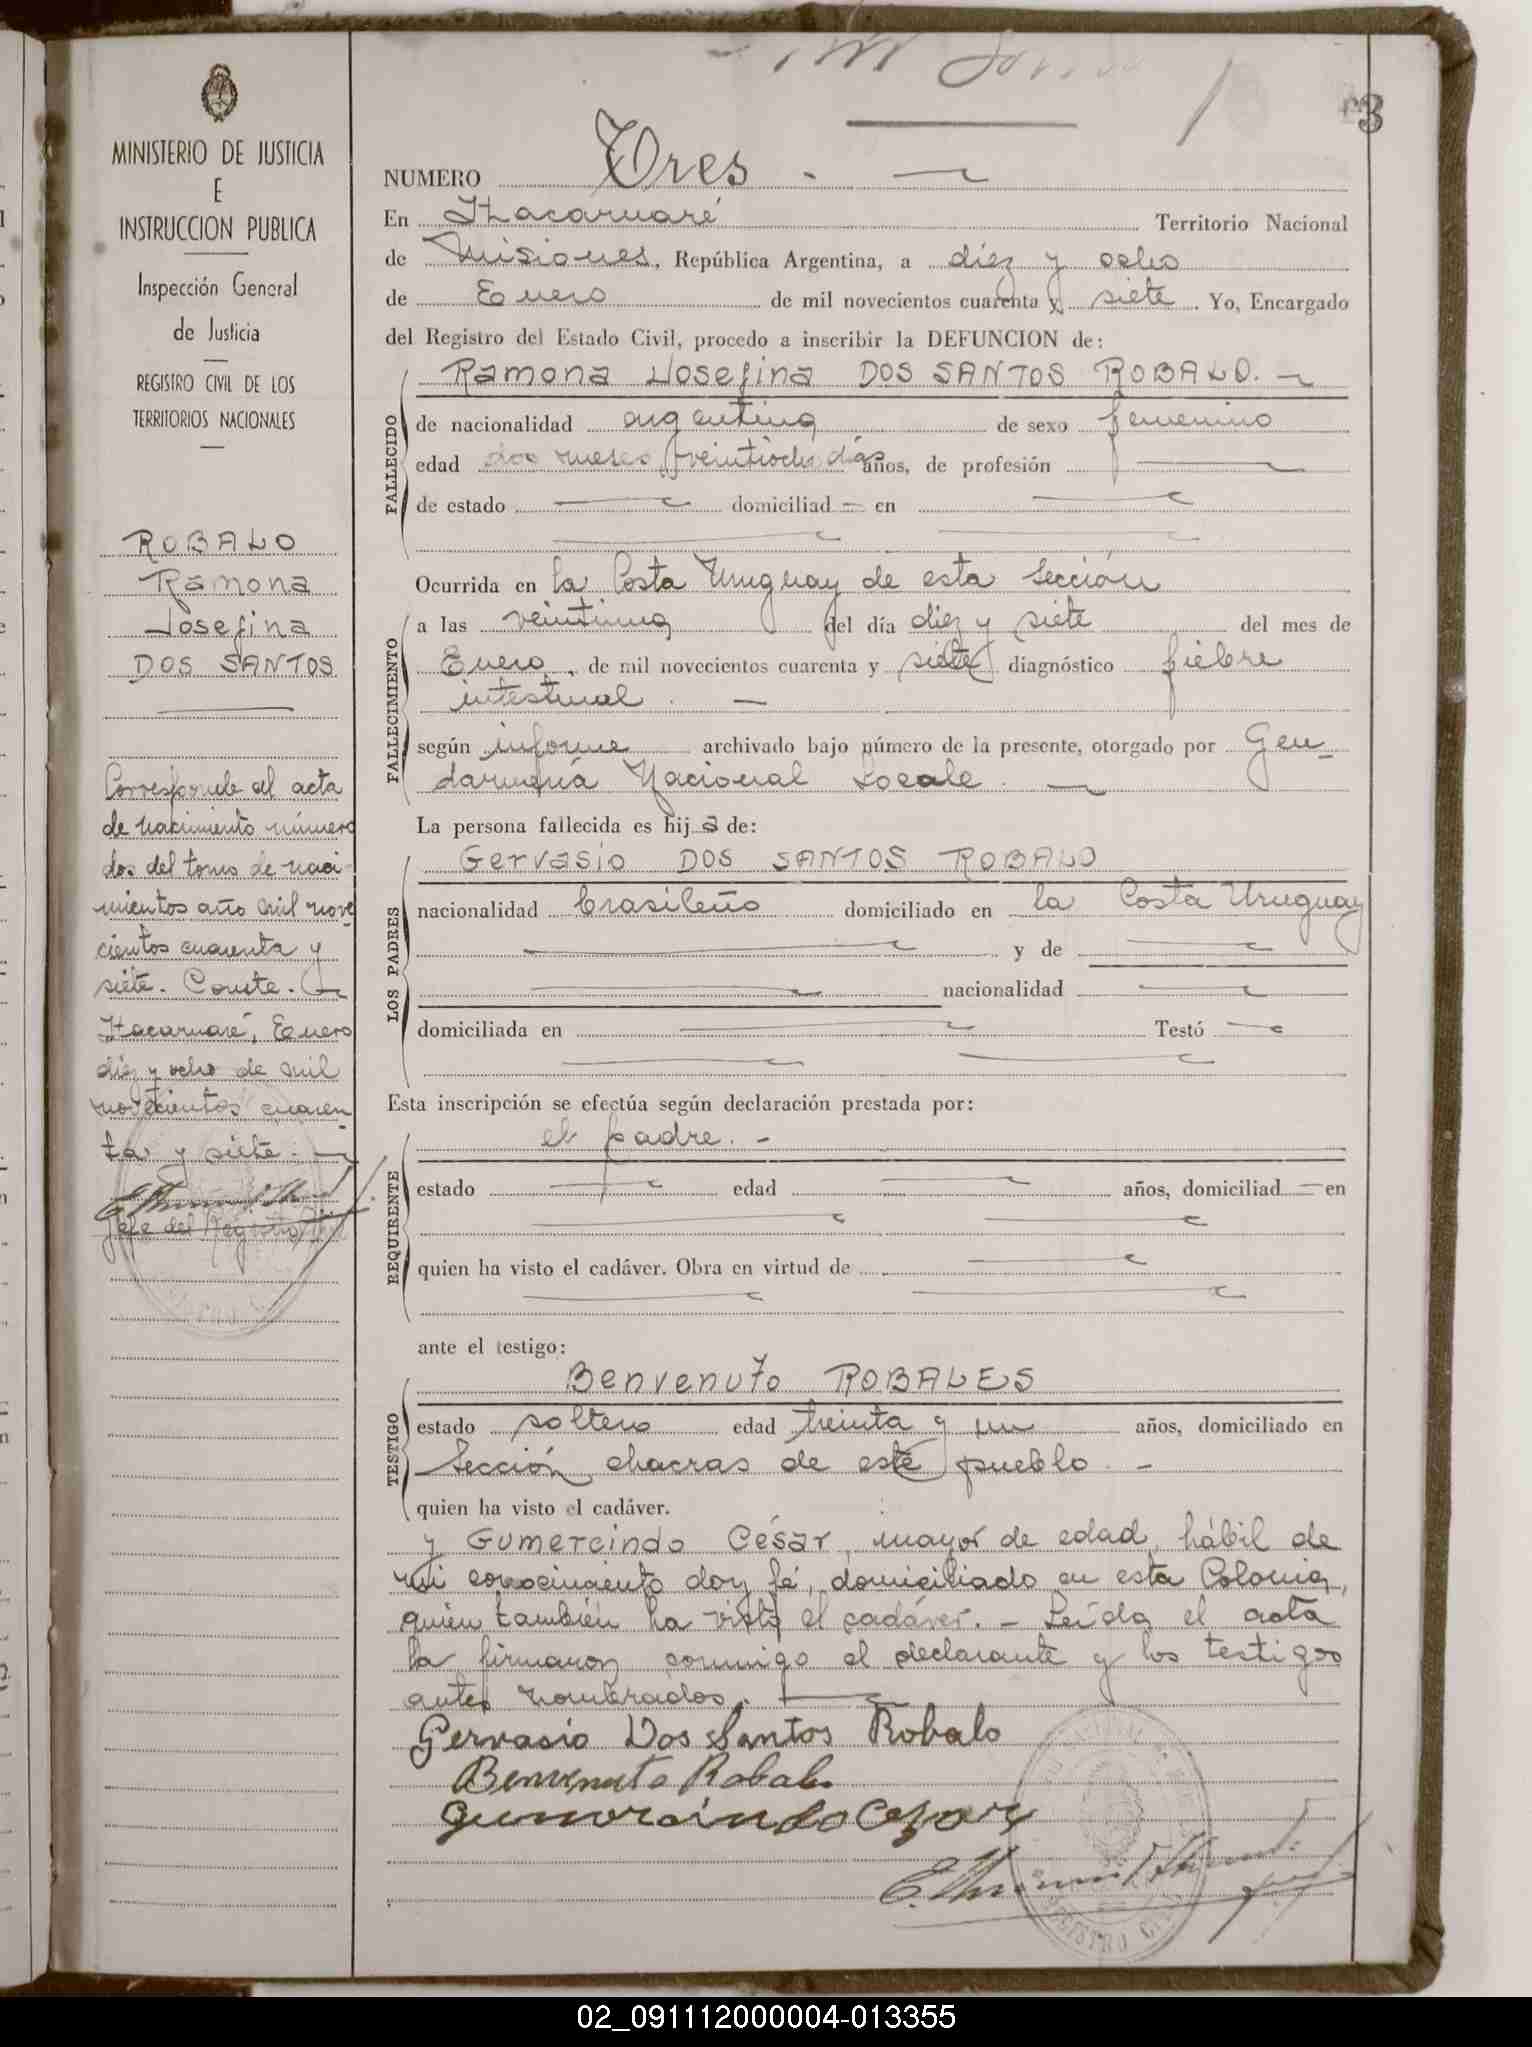 3
MINISTERIO DE JUSTICIA
E
INSTRUCCION PUBLICA
Inspección General
de Justicia
REGISTRO CIVIL DE LOS
TERRITORIOS NACIONALES
ROBALO
Ramona
Josefina
DOS SANTOS
Corresponde al acta
de nacimiento número
dos del tomo de naci-
mientos año mil nove-
cientos cuarenta y
siete. Conste.
Itacaruaré, Enero
diez y ocho de mil
novecientos cuaren-
ta y siete.
Jefe del Registro Civil
NUMERO Tres
En Itacaruaré Territorio Nacional
de Misiones, República Argentina, a diez y ocho
de Enero de mil novecientos cuarenta y siete. Yo, Encargado
del Registro del Estado Civil, procedo a inscribir la DEFUNCION de:
FALLECIDO
Ramona Josefina DOS SANTOS ROBALO.
de nacionalidad argentina de sexo femenino
edad dos meses, veintiocho días años, de profesión
de estado domiciliad en
Ocurrida en la Costa Uruguay de esta Sección
FALLECIMIENTO
a las veintiuna del día diez y siete del mes de
Enero, de mil novecientos cuarenta y siete diagnóstico fiebre
intestinal.
según informe archivado bajo número de la presente, otorgado por Gen-
darmería Nacional Locale.
La persona fallecida es hija de:
LOS PADRES
Gervasio DOS SANTOS ROBALO
nacionalidad brasileño domiciliado en la Costa Uruguay
y de
nacionalidad
domiciliada en Testó
Esta inscripción se efectúa según declaración prestada por:
REQUIRENTE
el padre. -
estado edad años, domiciliad en
quien ha visto el cadáver. Obra en virtud de
ante el testigo:
TESTIGO
Benvenuto ROBALES
estado soltero edad treinta y un años, domiciliado en
Sección chacras de este pueblo. -
quien ha visto el cadáver.
y Gumercindo César, mayor de edad, hábil de
mi conocimiento doy fé, domiciliado en esta Colonia,
quien también ha visto el cadáver. - Leída el acta
la firmaron conmigo el declarante y los testigos
antes nombrados.
Gervasio Dos Santos Robalo
Benvenuto Robales
Gumercindo Cezar
REGISTRO CIVIL
02_091112000004-013355